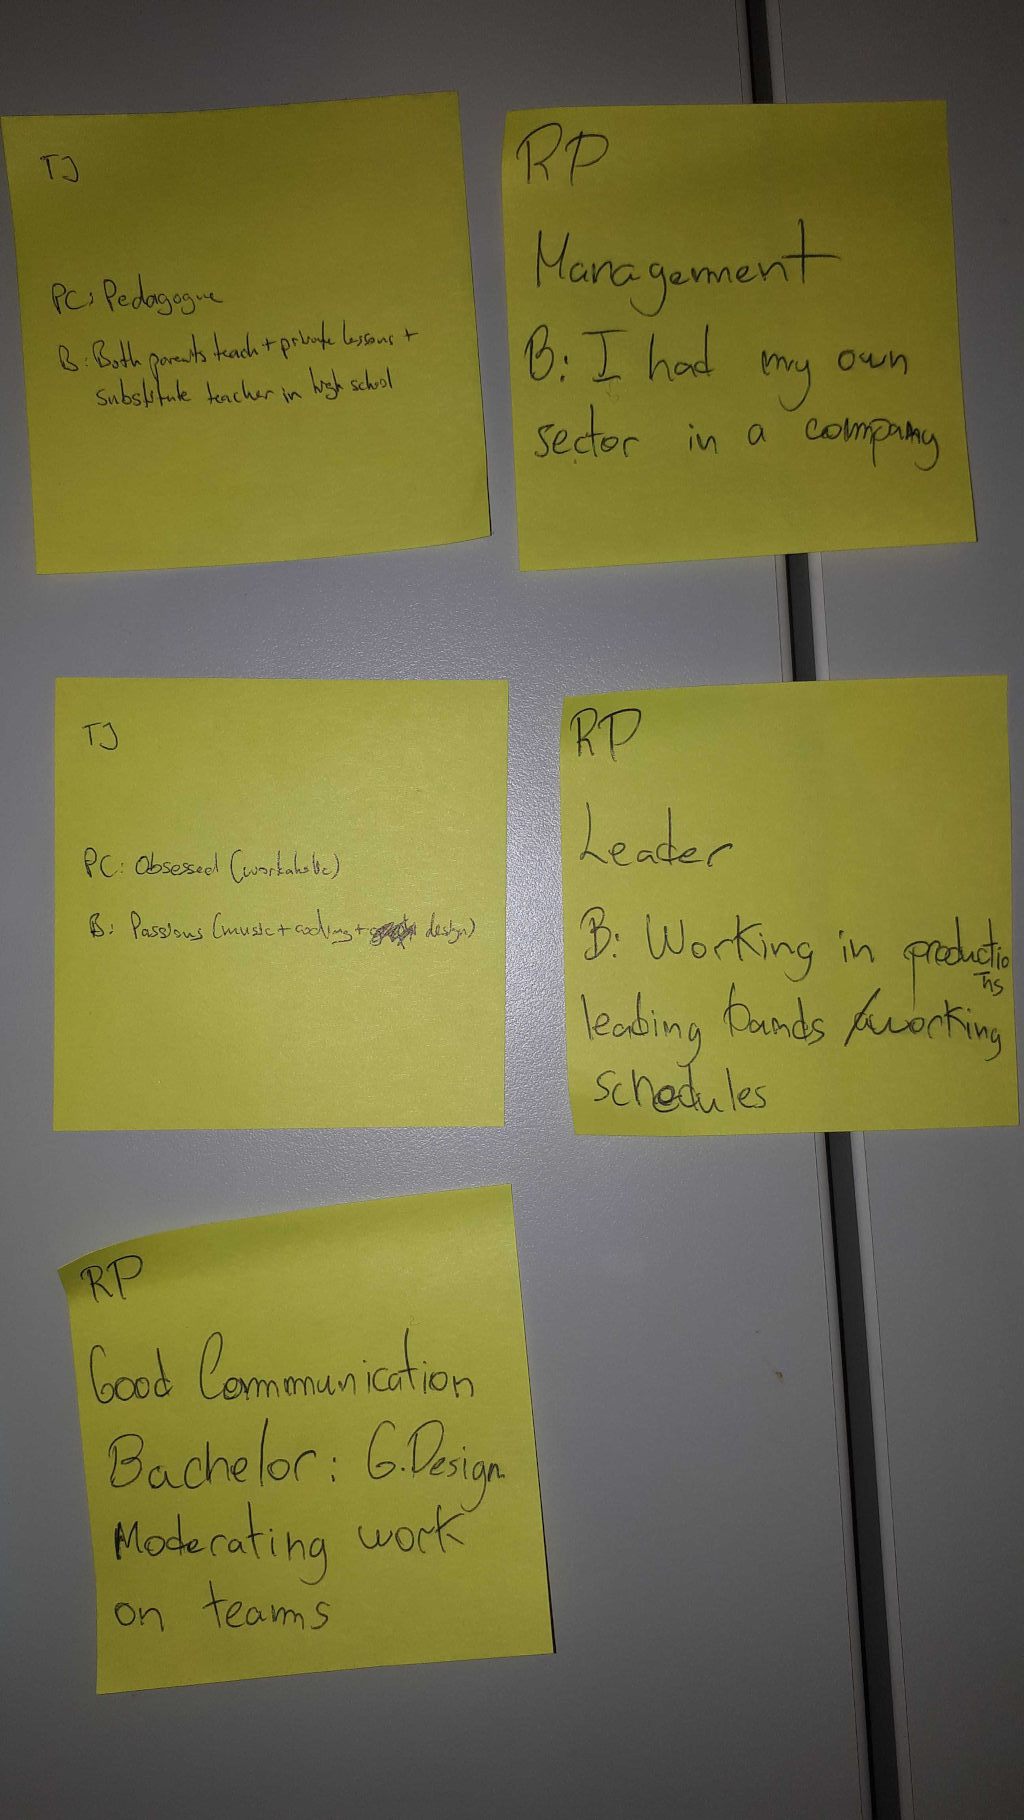 TJ
PC: Pedagogue
B: Both parents teach + private lessons +
substitute teacher in high school
RP
Management
B: I had my own
sector in a company
TJ
PC: Obsessed (workaholic)
B: Passions (music + coding + design)
RP
Leader
B: Working in productio
ns
leading bands /working
schedules
RP
Good Communication
Bachelor: G.Design
Moderating work
on teams